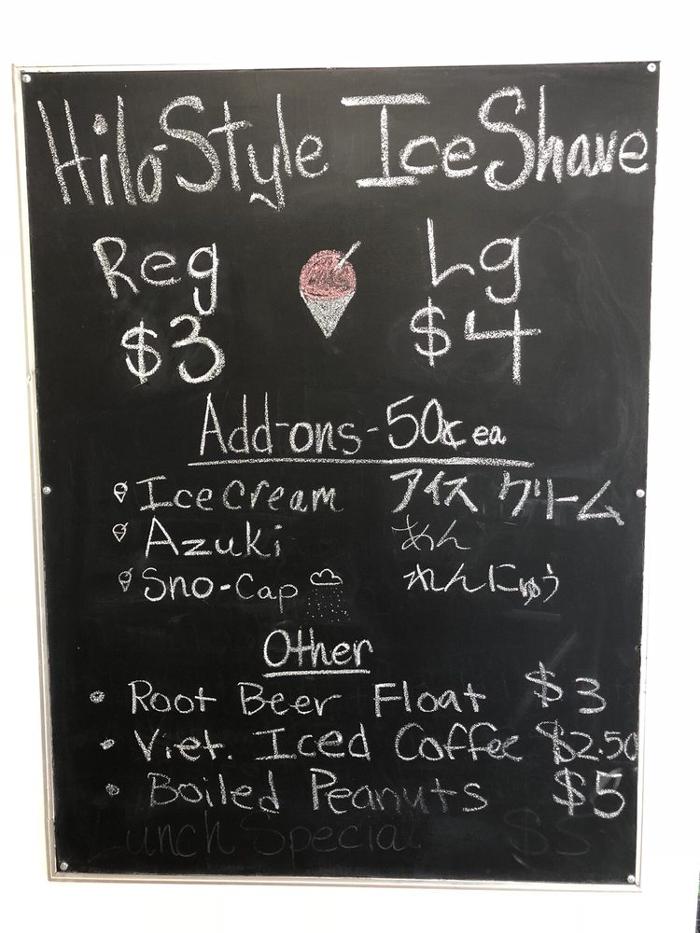 Hilo Style Ice Shave
Reg Lg
$3 $4
Add-ons - 50¢ ea
Ice Cream アイス クリーム
Azuki あん
Sno-Cap れんにゅう
Other
• Root Beer Float $3
• Viet. Iced Coffee $2.50
• Boiled Peanuts $5
Lunch Special $5